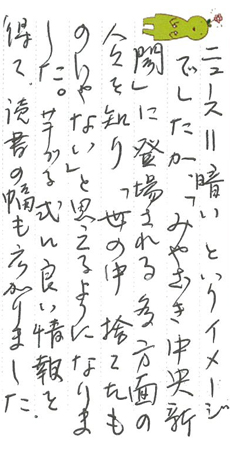 ニュース＝暗いというイメージ
でしたが、「みやざき中央新
聞」に登場される多方面の
人を知り「世の中捨てたも
のじゃない」と思えるようになりま
した。芋づる式に良い情報を
得て、読書の幅も広がりました。